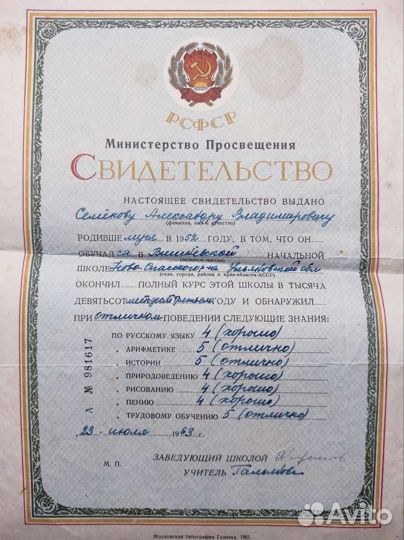 РСФСР
Министерство Просвещения
СВИДЕТЕЛЬСТВО
НАСТОЯЩЕЕ СВИДЕТЕЛЬСТВО ВЫДАНО
Семёнову Александру Владимировичу
(фамилия, имя и отчество)
РОДИВШЕМУСЯ В 1952 ГОДУ, В ТОМ, ЧТО ОН
ОБУЧАЛСЯ В НАЧАЛЬНОЙ
ШКОЛЕ Ново-Спасского р-на Ульяновской обл
(села, города, района и края-области-АССР)
ОКОНЧИЛ ПОЛНЫЙ КУРС ЭТОЙ ШКОЛЫ В ТЫСЯЧА
ДЕВЯТЬСОТ ГОДУ И ОБНАРУЖИЛ
ПРИ отличном ПОВЕДЕНИИ СЛЕДУЮЩИЕ ЗНАНИЯ:
ПО РУССКОМУ ЯЗЫКУ 4 (хорошо)
„ АРИФМЕТИКЕ 5 (отлично)
„ ИСТОРИИ 5 (отлично)
„ ПРИРОДОВЕДЕНИЮ 4 (хорошо)
„ РИСОВАНИЮ 4 (хорошо)
„ ПЕНИЮ 4 (хорошо)
„ ТРУДОВОМУ ОБУЧЕНИЮ 5 (отлично)
А № 981617
23 июля 1963 г.
ЗАВЕДУЮЩИЙ ШКОЛОЙ
М. П.
УЧИТЕЛЬ
Московская типография Гознака. 1961.
Avito